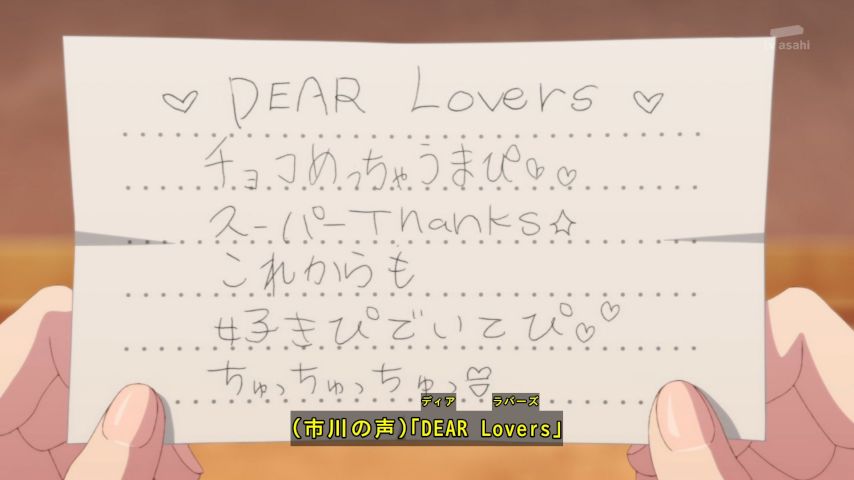 tv asahi
♡ DEAR Lovers ♡
チョコめっちゃうまぴ♡♡
スーパーThanks☆
これからも
好きぴでいてぴ♡♡
ちゅっちゅっちゅっ
ディア ラバーズ
(市川の声)｢DEAR Lovers｣